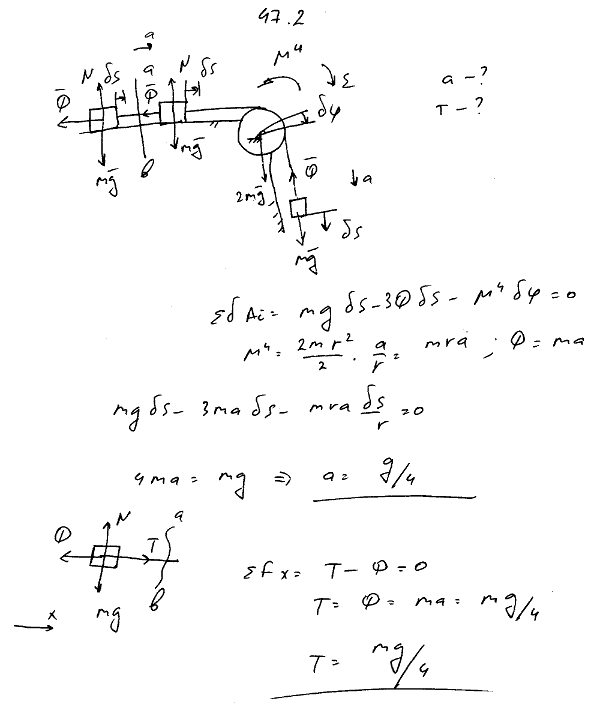 47.2
a
M^u
N δs a N δs ε a-?
Φ̄ Φ̄ δφ T-?
mḡ b mḡ Φ̄
2mḡ ↓a
δs
mḡ
ΣδAi = mg δs - 3Φ δs - M^u δφ = 0
M^u = 2mr²/2 · a/r = mra ; Φ = ma
mg δs - 3ma δs - mra δs/r = 0
4ma = mg ⇒ a = g/4
Φ N T a
mg b
x
ΣFx = T - Φ = 0
T = Φ = ma = mg/4
T = mg/4